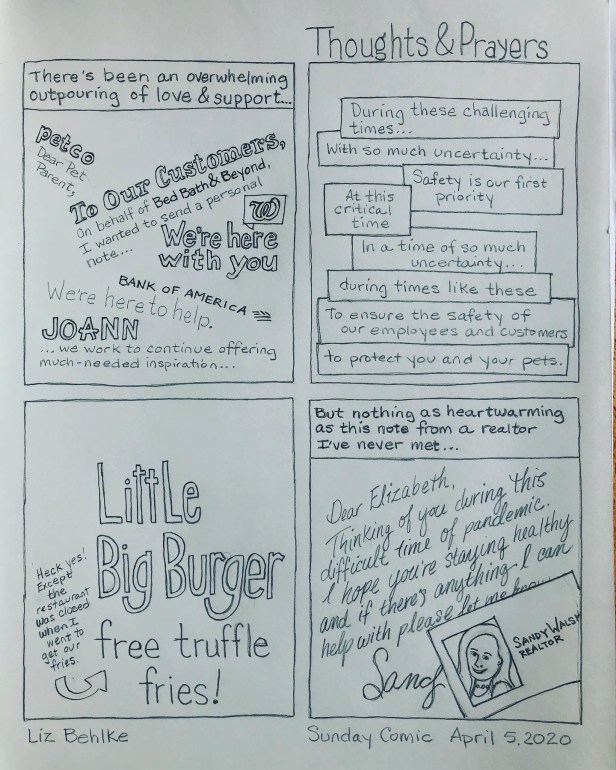 Thoughts & Prayers
There's been an overwhelming
outpouring of love & support...
petco
Dear Pet
Parent,
To Our Customers,
On behalf of Bed Bath & Beyond,
I wanted to send a personal
note...
W
We're here
with you
BANK OF AMERICA
We're here to help.
JOANN
...we work to continue offering
much-needed inspiration...
During these challenging
times...
With so much uncertainty...
Safety is our first
priority
At this
critical
time
In a time of so much
uncertainty...
during times like these
To ensure the safety of
our employees and customers
to protect you and your pets.
Little
Big Burger
free truffle
fries!
Heck yes!
Except
the
restaurant
was closed
when I
went to
get our
fries.
But nothing as heartwarming
as this note from a realtor
I've never met...
Dear Elizabeth,
Thinking of you during this
difficult time of pandemic.
I hope you're staying healthy
and if there's anything I can
help with please let me know
Sandy
SANDY WALSH
REALTOR
Liz Behlke
Sunday Comic April 5, 2020